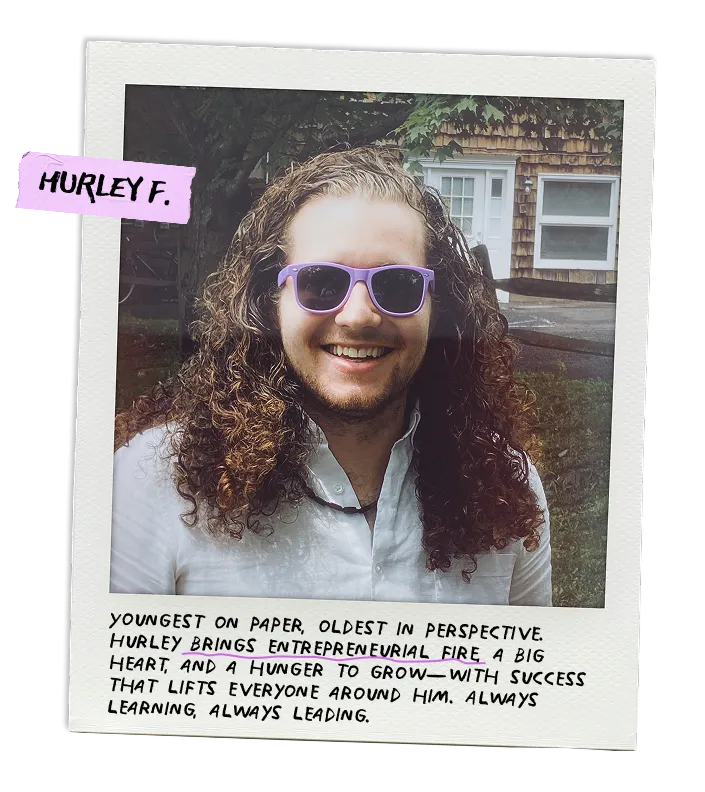 HURLEY F.
YOUNGEST ON PAPER, OLDEST IN PERSPECTIVE.
HURLEY BRINGS ENTREPRENEURIAL FIRE, A BIG
HEART, AND A HUNGER TO GROW—WITH SUCCESS
THAT LIFTS EVERYONE AROUND HIM. ALWAYS
LEARNING, ALWAYS LEADING.